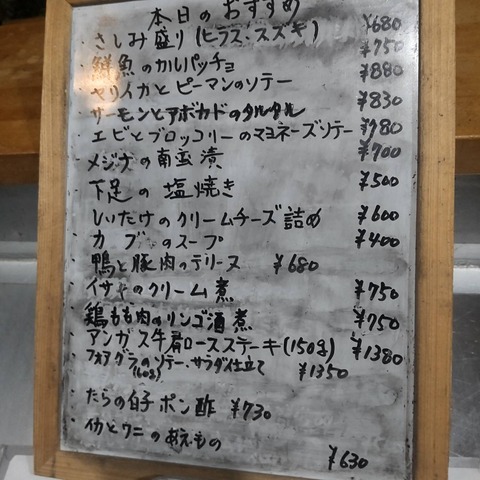 本日のおすすめ
・さしみ盛り(ヒラス・スズキ) ¥680
・鮮魚のカルパッチョ ¥750
・ヤリイカとピーマンのソテー ¥880
・サーモンとアボカドのタルタル ¥830
・エビとブロッコリーのマヨネーズソテー ¥780
・メジナの南蛮漬 ¥700
・下足の塩焼き ¥500
・しいたけのクリームチーズ詰め ¥600
・カブのスープ ¥400
・鴨と豚肉のテリーヌ ¥680
・イサキのクリーム煮 ¥750
・鶏もも肉のリンゴ酒煮 ¥750
・アンガス牛肩ロースステーキ(150g) ¥1380
・フォアグラのソテー、サラダ仕立て ¥1350
(60g)
・たらの白子ポン酢 ¥730
・イカとウニのあえもの
¥630